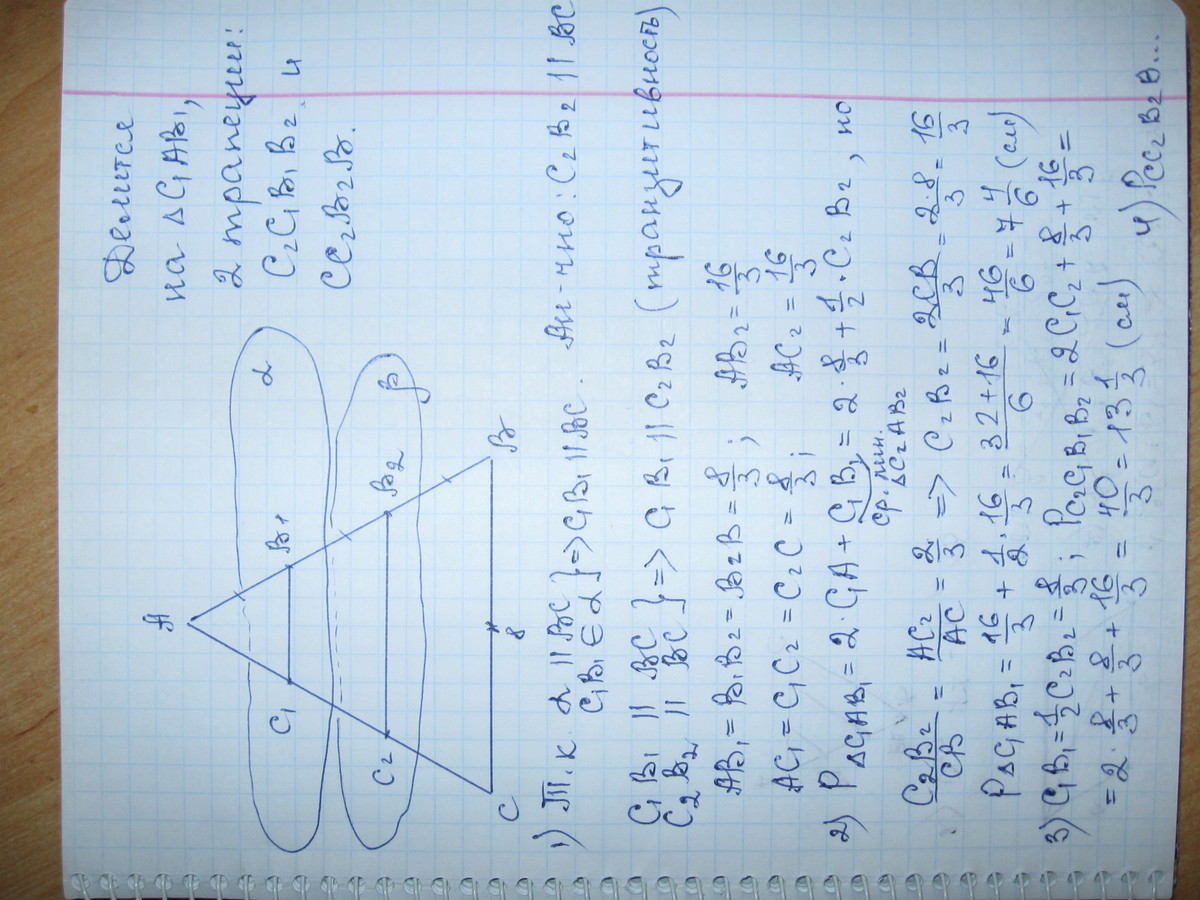 Делится
на △C₁AB₁,
2 трапеции:
C₂C₁B₁B₂ и
CC₂B₂B.
A
α
C₁ B₁
β
C₂ B₂
C 8 B
1) Т.к. α || BC
C₁B₁ ∈ α } => C₁B₁ || BC. Ан-чно: C₂B₂ || BC
C₁B₁ || BC
C₂B₂ || BC } => C₁B₁ || C₂B₂ (транзитивность)
AB₁ = B₁B₂ = B₂B = 8/3; AB₂ = 16/3
AC₁ = C₁C₂ = C₂C = 8/3; AC₂ = 16/3
2) P△C₁AB₁ = 2 · C₁A + C₁B₁ = 2 · 8/3 + 1/2 · C₂B₂, но
ср. лин.
△C₂AB₂
C₂B₂/CB = AC₂/AC = 2/3 => C₂B₂ = 2CB/3 = 2·8/3 = 16/3
P△C₁AB₁ = 16/3 + 1/2 · 16/3 = 32+16/6 = 46/6 = 7 4/6 (см)
3) C₁B₁ = 1/2 C₂B₂ = 8/3; PC₂C₁B₁B₂ = 2C₁C₂ + 8/3 + 16/3 =
= 2 · 8/3 + 8/3 + 16/3 = 40/3 = 13 1/3 (см) 4) PCC₂B₂B...